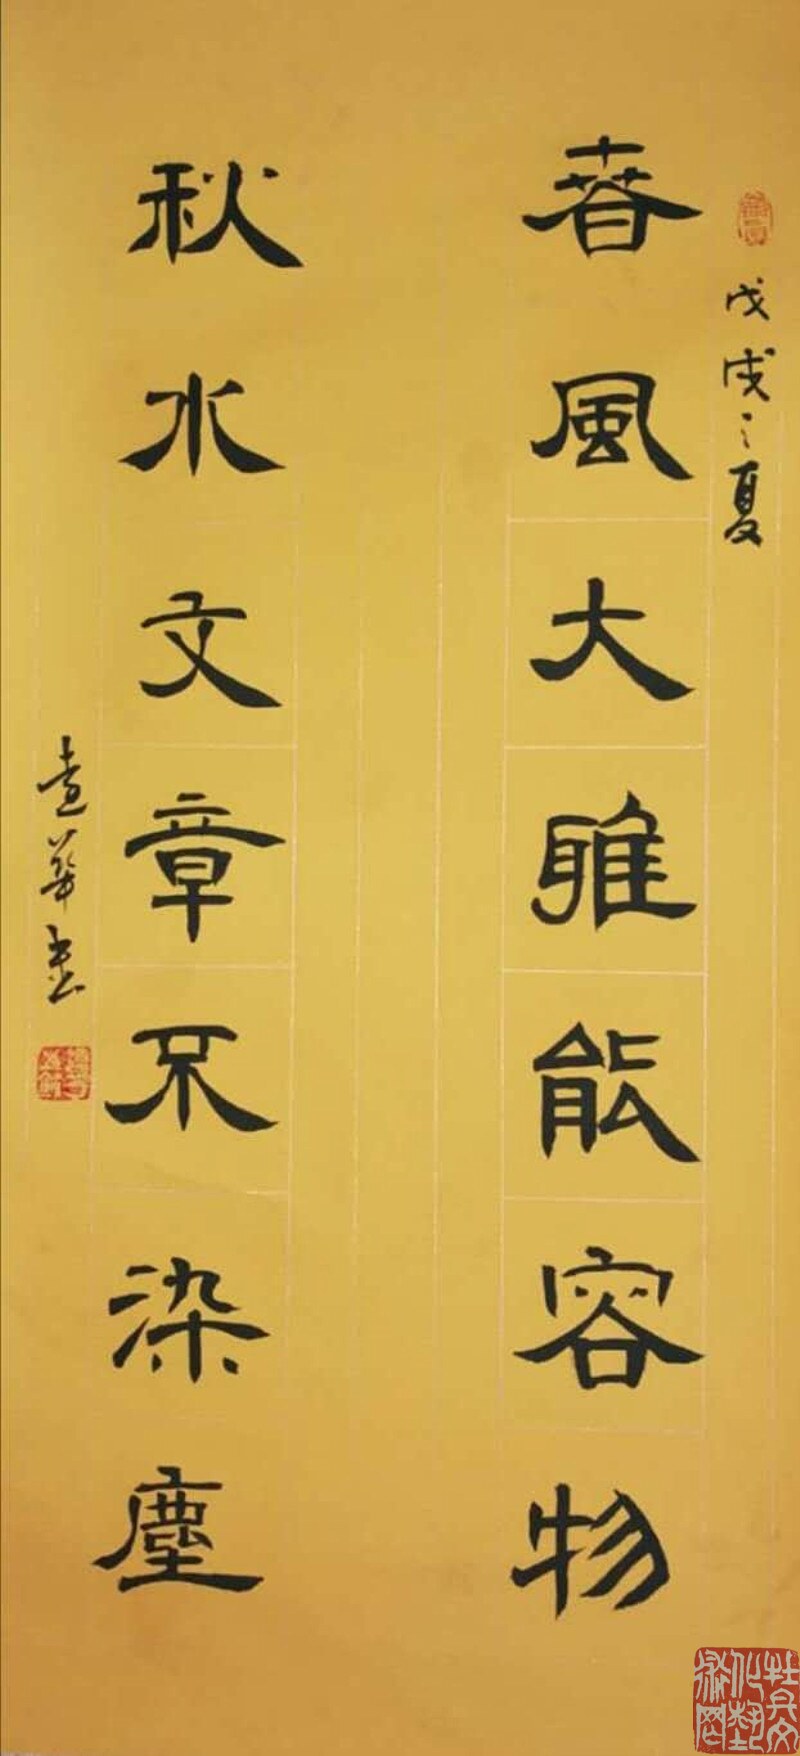 戊戌之夏
春風大雅能容物
秋水文章不染塵